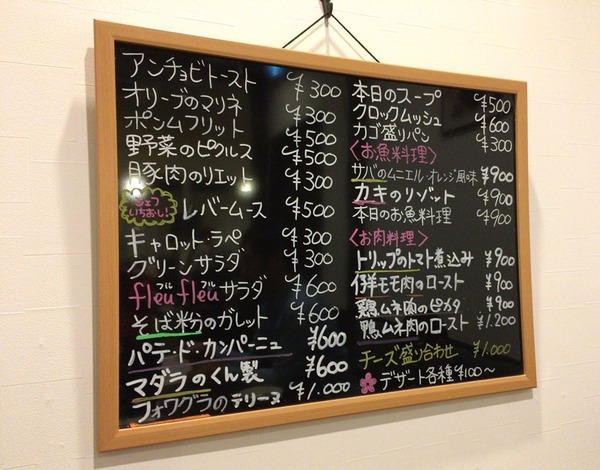 アンチョビトースト ¥300
オリーブのマリネ ¥300
ポンムフリット ¥500
野菜のピクルス ¥500
豚肉のリエット ¥300
シェフいちおし! レバームース ¥500
キャロット・ラペ ¥300
グリーンサラダ ¥300
fleufleuサラダ ¥600
フル フル
そば粉のガレット ¥600
パテ・ド・カンパーニュ ¥600
マダラのくん製 ¥600
フォワグラのテリーヌ ¥1.000
本日のスープ ¥500
クロックムッシュ ¥600
カゴ盛りパン ¥300
〈お魚料理〉
サバのムニエル・オレンジ風味 ¥900
カキのリゾット ¥900
本日のお魚料理 ¥900
〈お肉料理〉
トリップのトマト煮込み ¥900
仔羊モモ肉のロースト ¥900
鶏ムネ肉のピカタ ¥900
鴨ムネ肉のロースト ¥1.200
チーズ盛り合わせ ¥1.000
デザート各種 ¥100〜